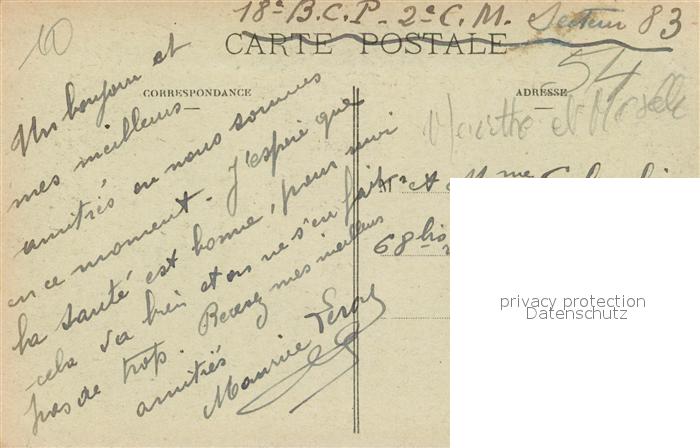 10
18e B.C.P. 2e C.M. Secteur 83
CARTE POSTALE
54
CORRESPONDANCE
ADRESSE
Meurthe et Moselle
Un bonjour et
mes meilleurs
amitiés ou nous sommes
en ce moment. J'espère que
la santé est bonne, pour moi
cela va bien et on ne s'en fait
pas de trop. Recevez mes meilleurs
amitiés
Maurice
Mr et Mme
68 bis
privacy protection
Datenschutz